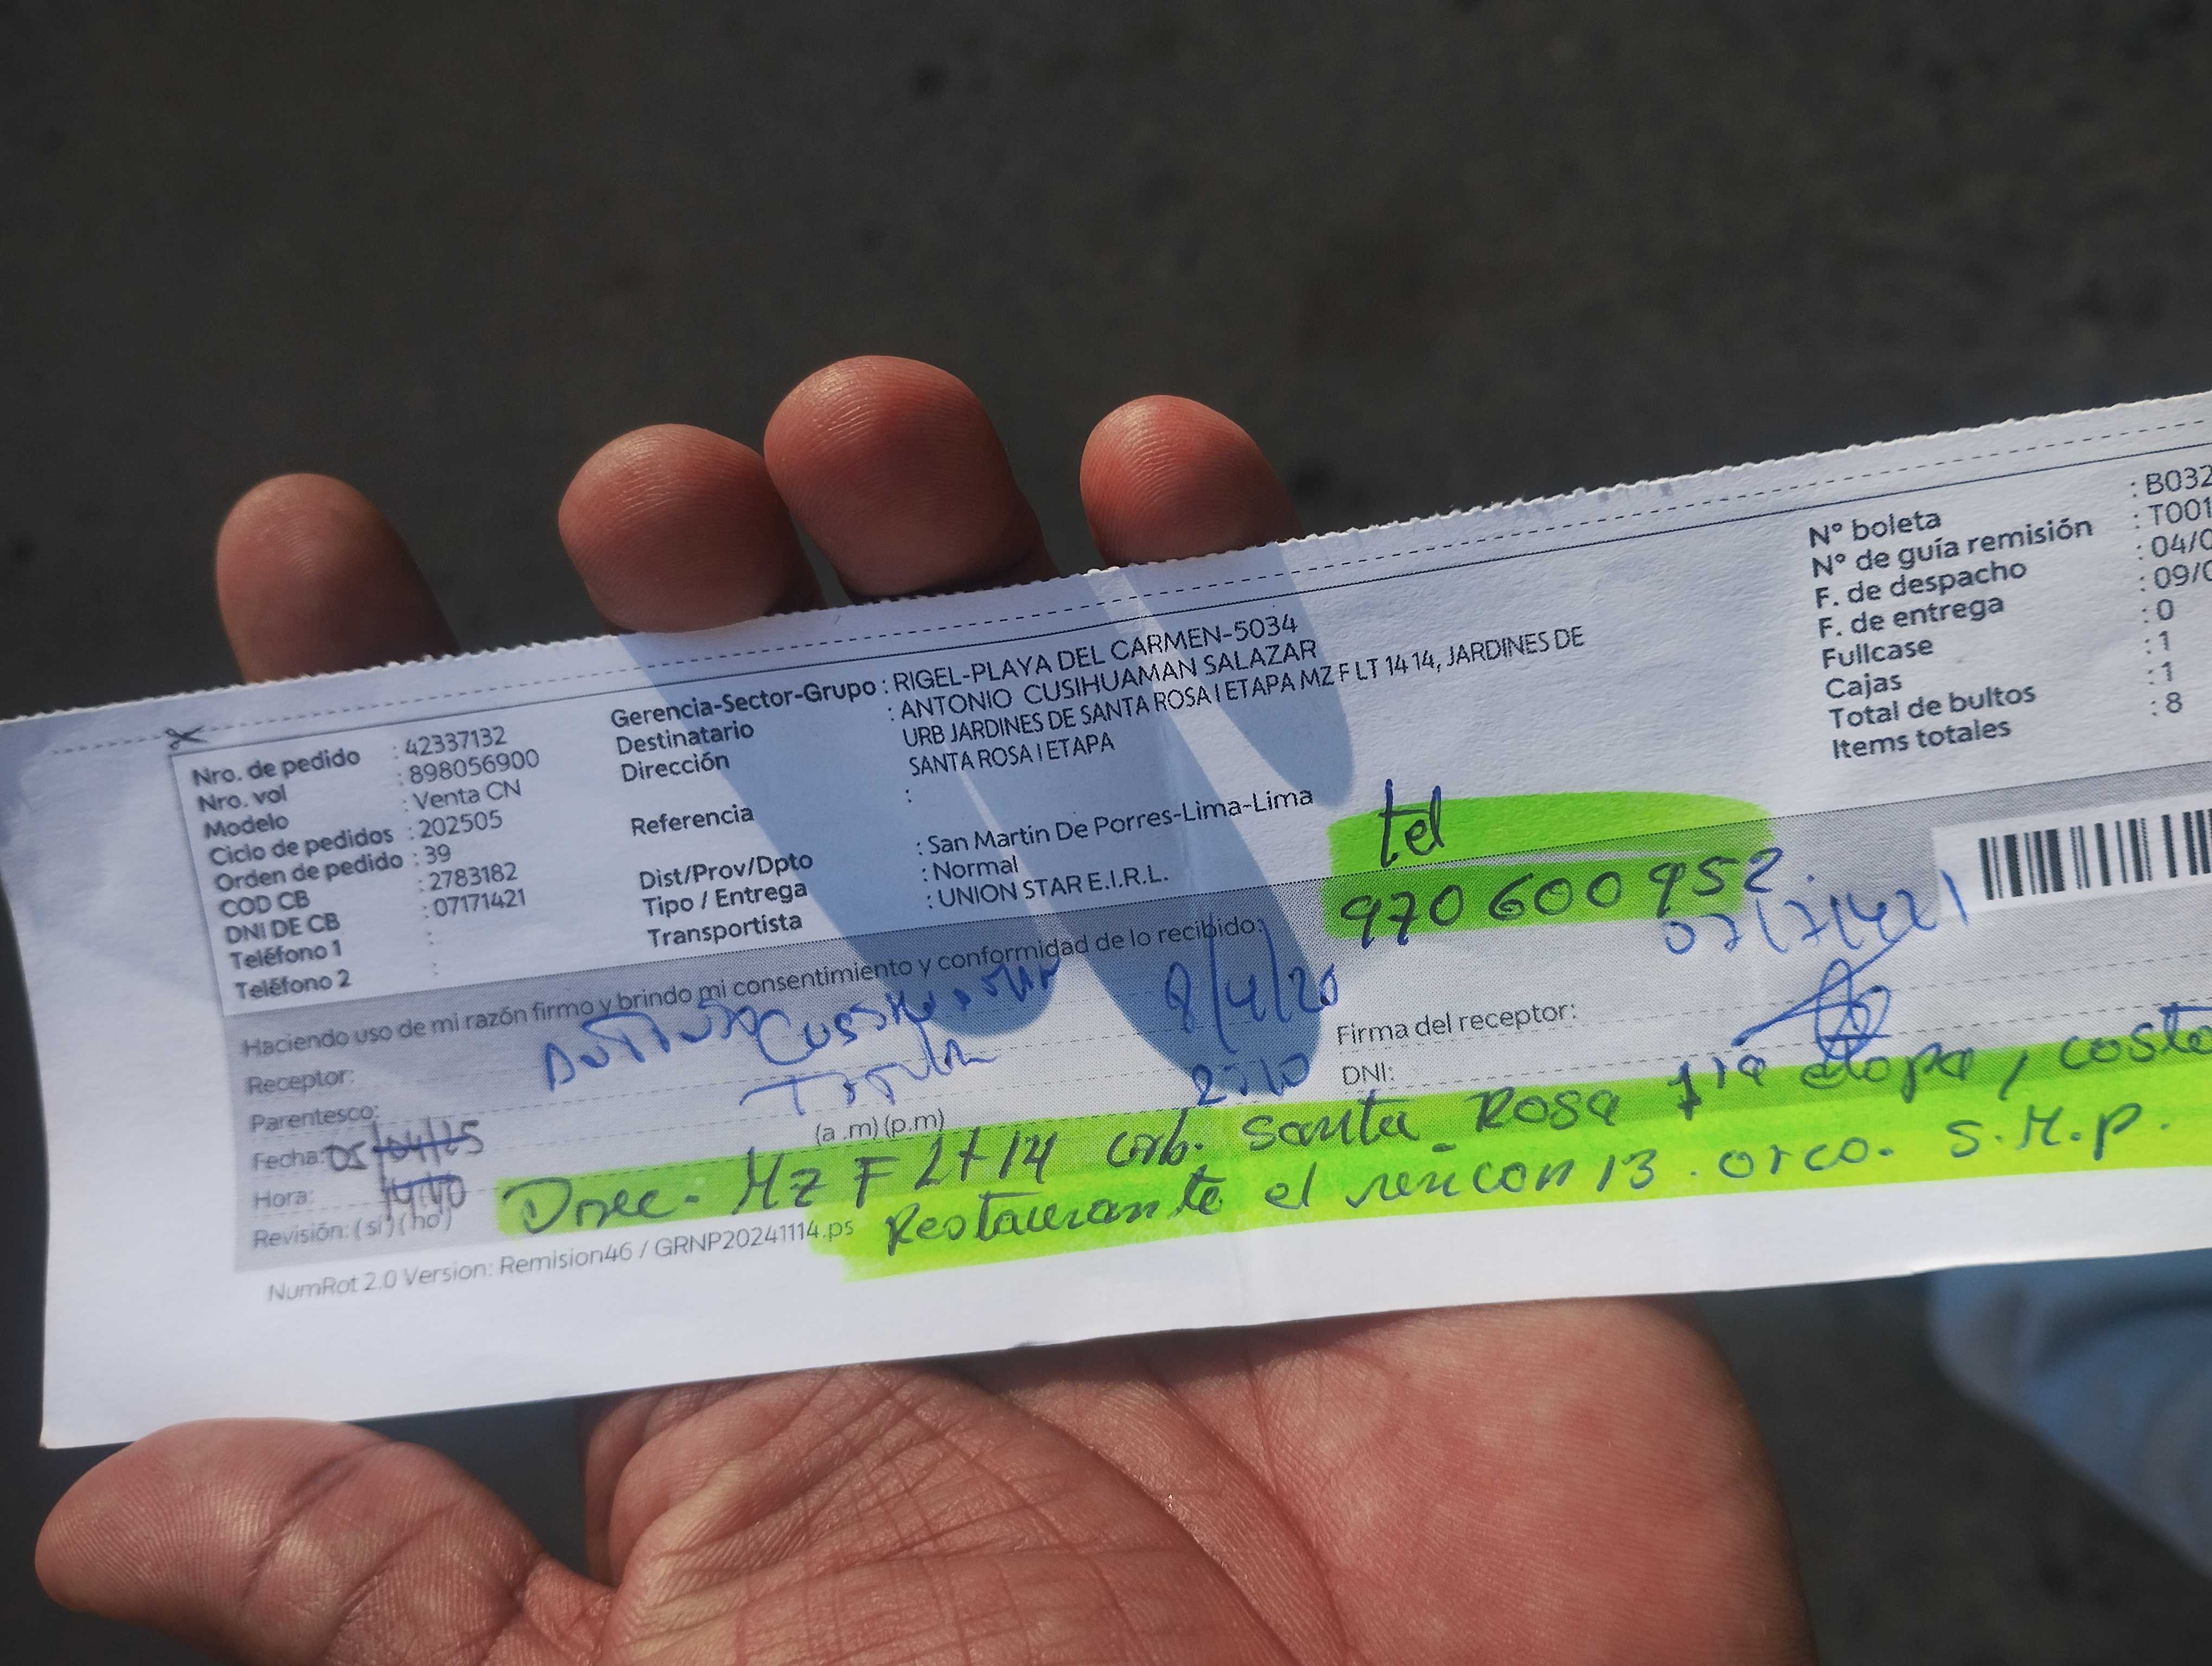 Nro. de pedido : 42337132
Nro. vol : 898056900
Modelo : Venta CN
Ciclo de pedidos : 202505
Orden de pedido : 39
COD CB : 2783182
DNI DE CB : 07171421
Teléfono 1 :
Teléfono 2 :
Gerencia-Sector-Grupo : RIGEL-PLAYA DEL CARMEN-5034
Destinatario : ANTONIO CUSIHUAMAN SALAZAR
Dirección URB JARDINES DE SANTA ROSA I ETAPA MZ F LT 14 14, JARDINES DE
SANTA ROSA I ETAPA
Referencia :
Dist/Prov/Dpto : San Martin De Porres-Lima-Lima
Tipo / Entrega : Normal
Transportista : UNION STAR E.I.R.L.
N° boleta : B032
N° de guía remisión : T001
F. de despacho : 04/0
F. de entrega : 09/0
Fullcase : 0
Cajas : 1
Total de bultos : 1
Items totales : 8
tel
970 600 952.
Haciendo uso de mi razón firmo y brindo mi consentimiento y conformidad de lo recibido:
07171421
Receptor:
Firma del receptor:
Parentesco:
DNI:
Fecha: 05/04/25 (a.m) (p.m)
Hora: 14:10
Revisión: (si) (no)
Direc- Mz F Lt 14 urb. Santa Rosa 1ra etapa, costa
Restaurante el rincon 13. orco. S.M.P.
NumRot 2.0 Version: Remision46 / GRNP20241114.ps